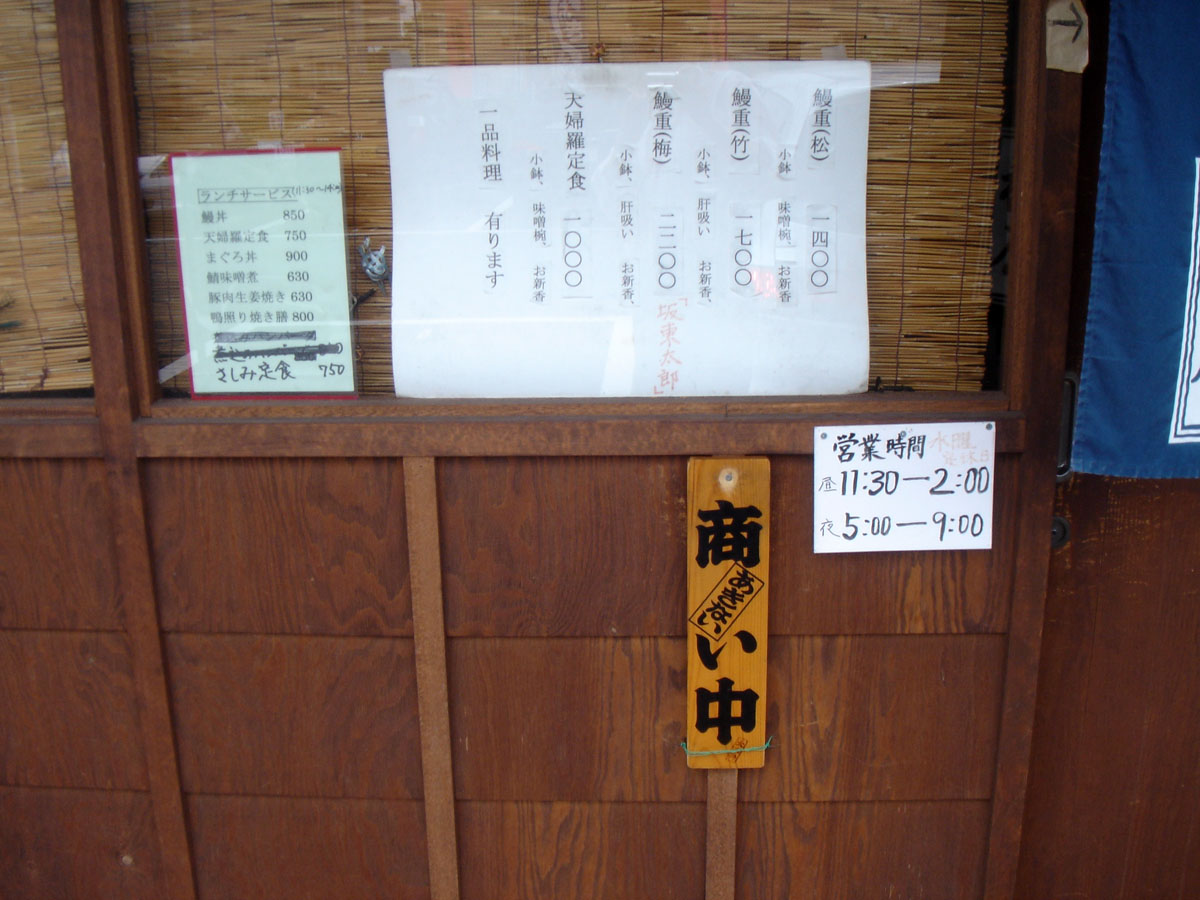 ランチサービス(11:30〜14:00)
鰻丼 850
天婦羅定食 750
まぐろ丼 900
鯖味噌煮 630
豚肉生姜焼き 630
鴨照り焼き膳 800
さしみ定食 750
鰻重(松) 一四〇〇
小鉢、味噌椀、お新香
鰻重(竹) 一七〇〇
小鉢、肝吸い お新香、
鰻重(梅) 二二〇〇「坂東太郎」
小鉢、肝吸い お新香、
天婦羅定食 一〇〇〇
小鉢、味噌椀、お新香
一品料理 有ります
営業時間 水曜
定休日
昼 11:30―2:00
夜 5:00―9:00
商い中
あきない